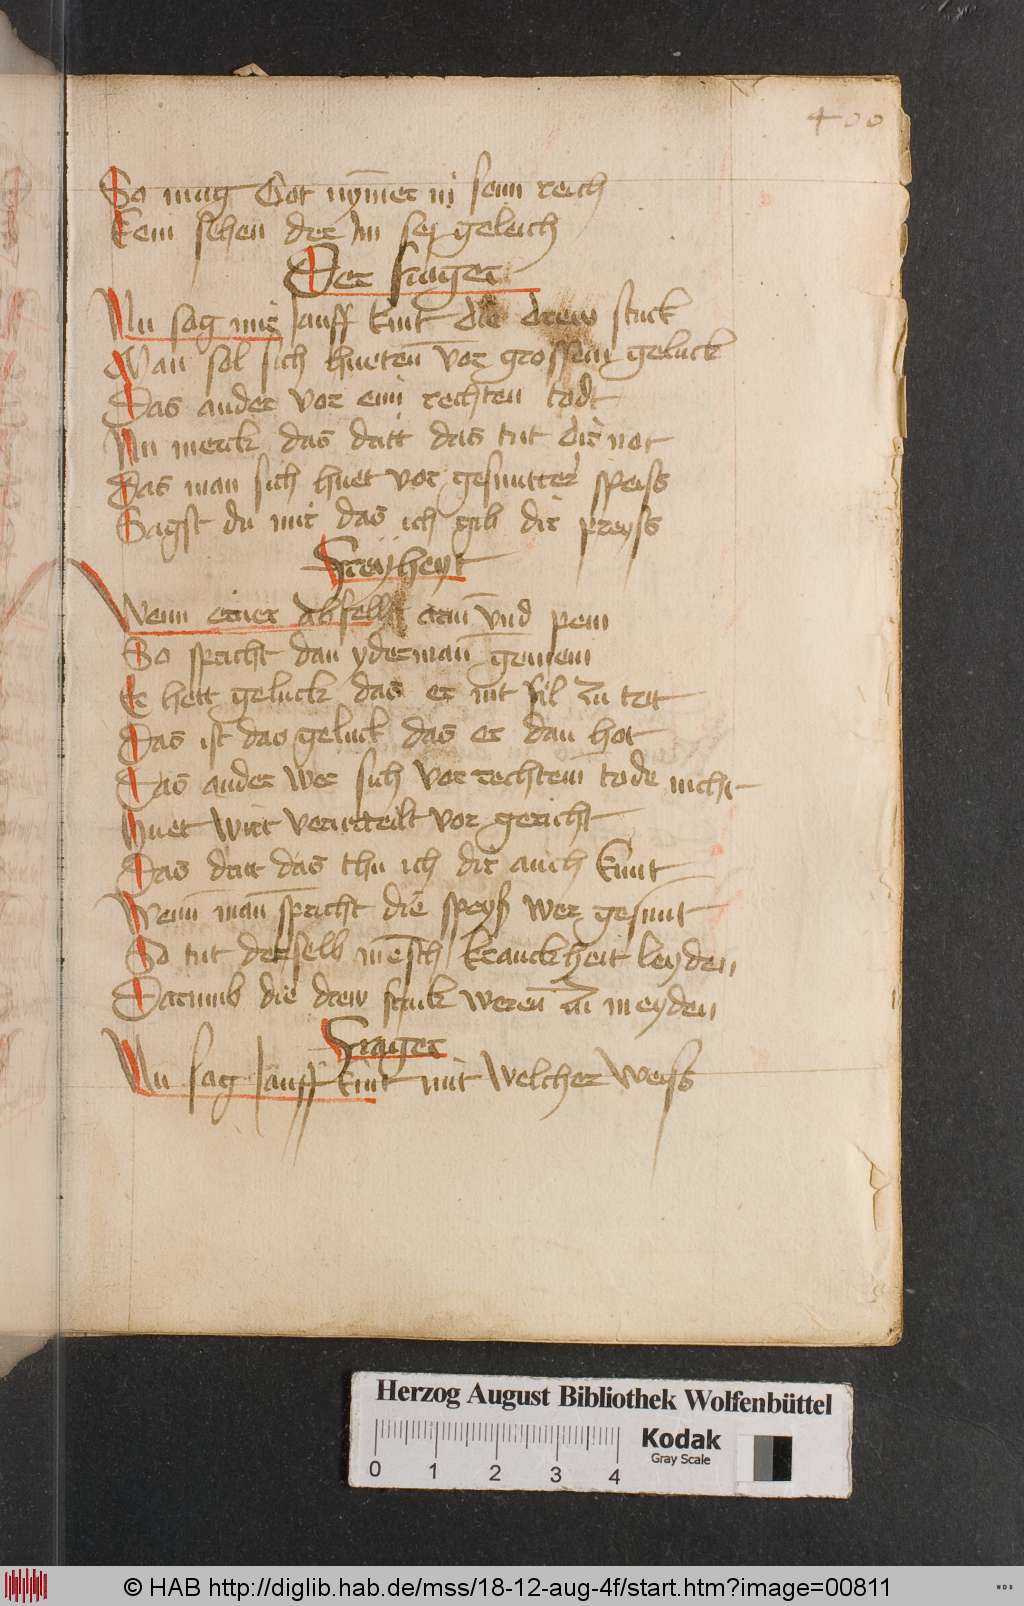 400
So mag Got nymer in seim reich
Kein sehen der im sej geleich
Der frager
Nu sag mir lauff kint die drew stuck
Man sol sich hueten vor grossem geluck
Das ander vor eim rechten todt
Nu merck das dritt das tut dir not
Das man sich huet vor gesuntter speiss
Sagst du mir das ich gib dir preyss
Freyheyt
Wenn einer abfellt arm vnd pein
So spricht dan yderman gemein
Er hett geluck das er nit fil zu tott
Das ist das geluck das er dan hot
Das ander wer sich vor rechtem tode nicht
Huet wirt verurteilt vor gericht
Das dritt das thu ich dir auch kunt
Wenn man spricht die speyß wer gesunt
So tut derselb mensch kranckheit leyden
Darumb die drew stuck weren zu meyden
Frager
Nu sag lauff kint mit welcher weiss
Herzog August Bibliothek Wolfenbüttel
Kodak
Gray Scale
0 1 2 3 4
© HAB http://diglib.hab.de/mss/18-12-aug-4f/start.htm?image=00811